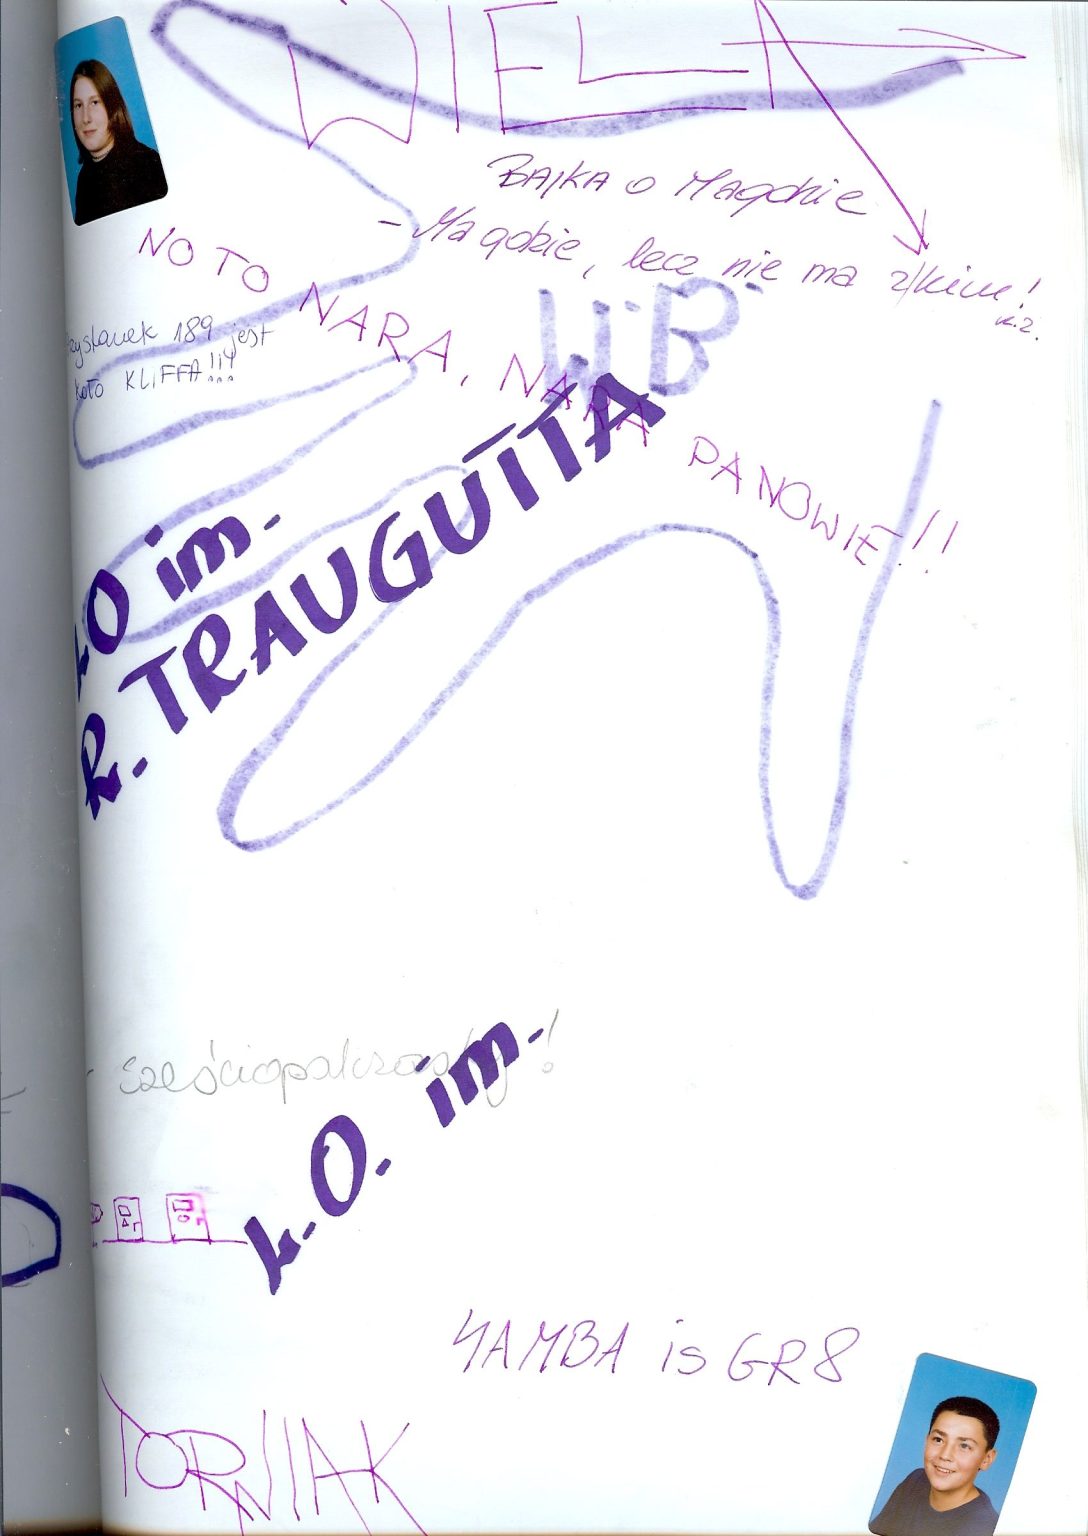 WIELA
BAJKA o Magdzie
- Ma gdzie, lecz nie ma z kim!
NO TO NARA, NARA PANOWIE!!
W.B.
jest
189
koło KLIFFA!!!
ŁO im.
R. TRAUGUTTA
!
Ł.O. im.
YAMBA is GR8
TORNIAK